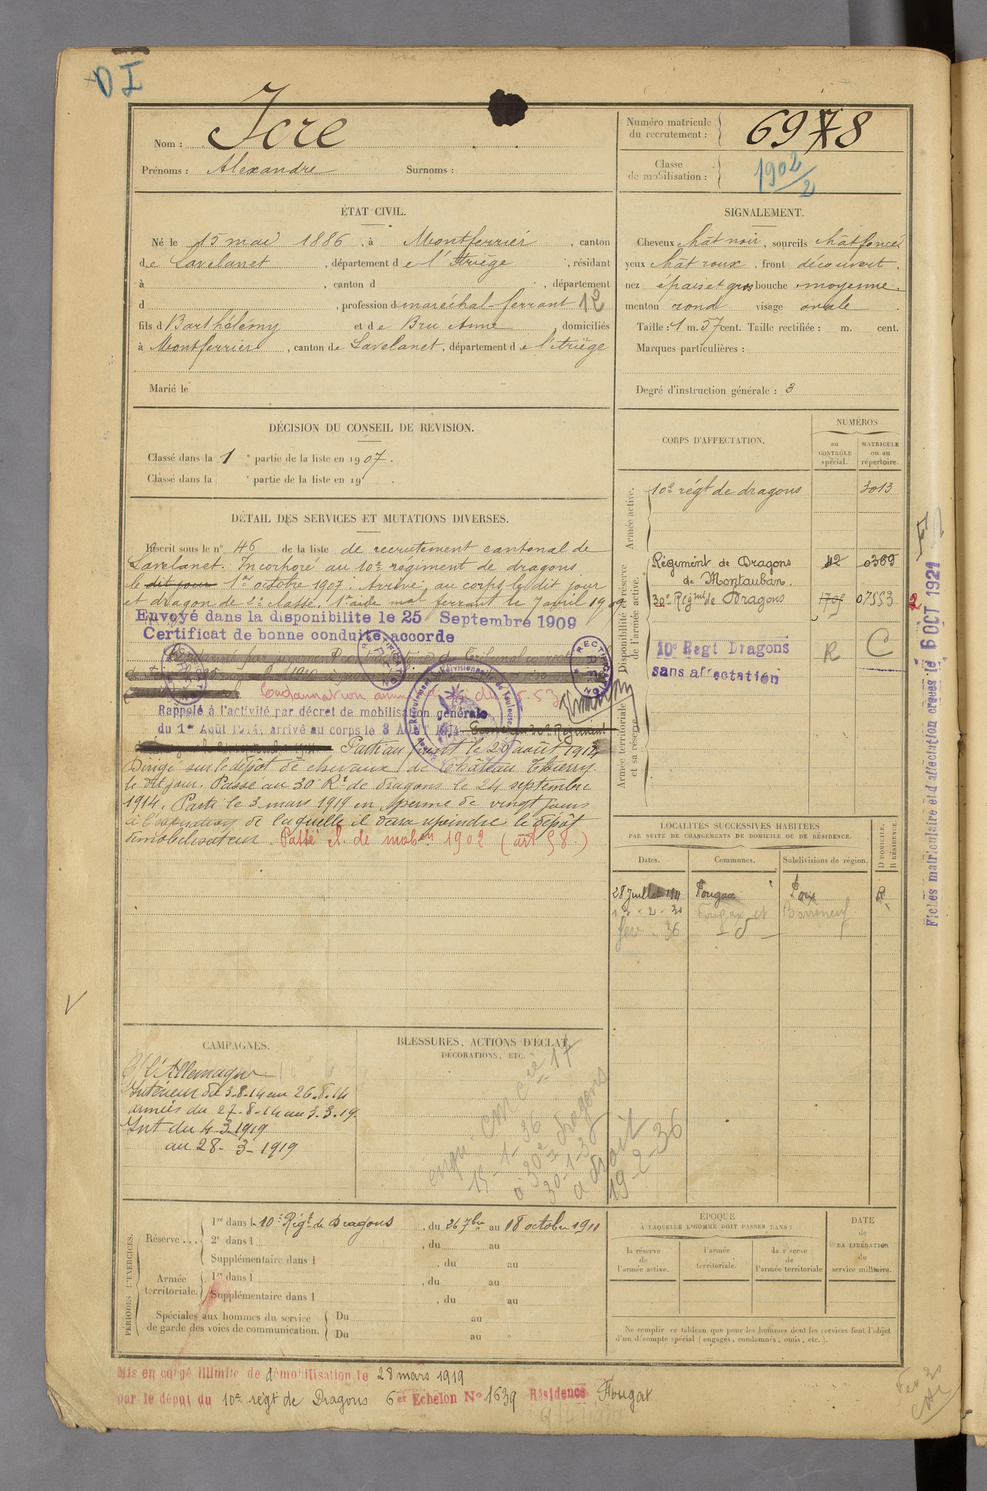 DI
Nom : Icre
Prénoms : Alexandre Surnoms :
Numéro matricule
du recrutement : 698
Classe
de mobilisation : 1902/2
ÉTAT CIVIL.
Né le 15 mai 1886, à Montferrier, canton
de Lavelanet, département de l'Ariège, résidant
à , canton d , département
d , profession d maréchal-ferrant 12
fils d Barthélémy et de Bru Anne, domiciliés
à Montferrier, canton de Lavelanet, département de l'Ariège
Marié le
SIGNALEMENT.
Cheveux chât noir, sourcils chât foncé
yeux chât roux, front découvert,
nez épais et gros bouche moyenne.
menton rond visage ovale
Taille : 1 m. 57 cent. Taille rectifiée : m. cent.
Marques particulières :
Degré d'instruction générale : 3
DÉCISION DU CONSEIL DE REVISION.
Classé dans la 1e partie de la liste en 1907.
Classé dans la e partie de la liste en 19
CORPS D'AFFECTATION.
NUMÉROS
au
CONTRÔLE
spécial.
MATRICULE
ou au
répertoire.
Armée active.
10e régt de dragons 3013
Disponibilité et réserve
de l'armée active.
Régiment de Dragons 42 0369
de Montauban.
30e Regiment de Dragons 07553
10e Regt Dragons R C
sans affectation
Armée territoriale
et sa réserve.
DÉTAIL DES SERVICES ET MUTATIONS DIVERSES.
Inscrit sous le n° 46 de la liste de recrutement cantonal de
Lavelanet. Incorporé au 10e régiment de dragons
le dit jour 1er octobre 1907. Arrivé au corps le dit jour
et dragon de 2e classe. 1er aide mal ferrant le 7 avril 1909
Envoyé dans la disponibilite le 25 Septembre 1909
Certificat de bonne conduite accorde
Condamnation
Rappelé à l'activité par décret de mobilisation générale
du 1er Août 1914, arrivé au corps le 3 Août 1914
Parti au front le 26 août 1914
Dirigé sur le dépôt de chevaux de Château Thierry
le dit jour. Passé au 30e Rt de dragons le 24 septembre
1914. Parti le 3 mars 1919 en perme de vingt jours
à l'expiration de laquelle il devra rejoindre le dépôt
démobilisateur. Passé cl. de mobon 1902 (art 58.)
LOCALITÉS SUCCESSIVES HABITÉES
PAR SUITE DE CHANGEMENTS DE DOMICILE OU DE RÉSIDENCE.
Dates. Communes. Subdivisions de région. D DOMICILE. R RÉSIDENCE
28 Juillet 1911 Fougax Foix R.
Fougax et Barrineuf
fev. 36
CAMPAGNES.
C/ l'Allemagne
Intérieur du 3.8.14 au 26.8.14
armées du 27-8-14 au 3.3.19
Int du 4-3-1919
au 28-3-1919
BLESSURES, ACTIONS D'ÉCLAT,
DÉCORATIONS, ETC.
15-1-36
30e dragons
a droit
19-2-36
PÉRIODES D'EXERCICES.
Réserve ... 1re dans le 10e Régt de Dragons, du 26 7bre au 18 octobre 1911
2e dans l , du au
Supplémentaire dans l , du au
Armée territoriale. 1re dans l , du au
Supplémentaire dans l , du au
Spéciales aux hommes du service
de garde des voies de communication.
Du au
Du au
EPOQUE
À LAQUELLE L'HOMME DOIT PASSER DANS :
la réserve
de
l'armée active.
l'armée
territoriale.
la réserve
de
l'armée territoriale
DATE
de
LA LIBÉRATION
du
service militaire.
Ne remplir ce tableau que pour les hommes dont les services font l'objet
d'un compte spécial (engagés, condamnés, omis, etc.).
Mis en congé illimité de démobilisation le 28 mars 1919
par le dépôt du 10e régt de Dragons 6er Echelon N° 1639 Résidence Fougat
Fiches matriculaire et d'affectation créées le 6 OCT 1921